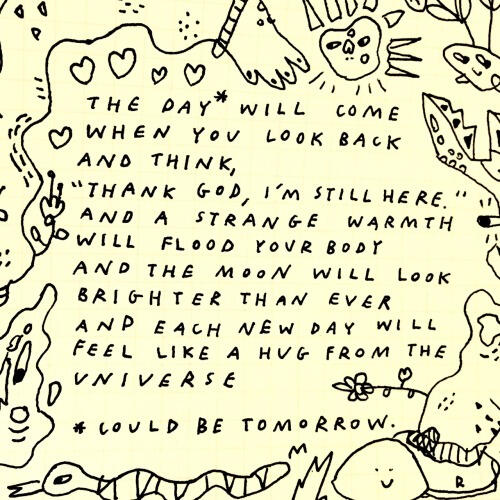 THE DAY* WILL COME
WHEN YOU LOOK BACK
AND THINK,
"THANK GOD, I'M STILL HERE."
AND A STRANGE WARMTH
WILL FLOOD YOUR BODY
AND THE MOON WILL LOOK
BRIGHTER THAN EVER
AND EACH NEW DAY WILL
FEEL LIKE A HUG FROM THE
UNIVERSE
* COULD BE TOMORROW.
R